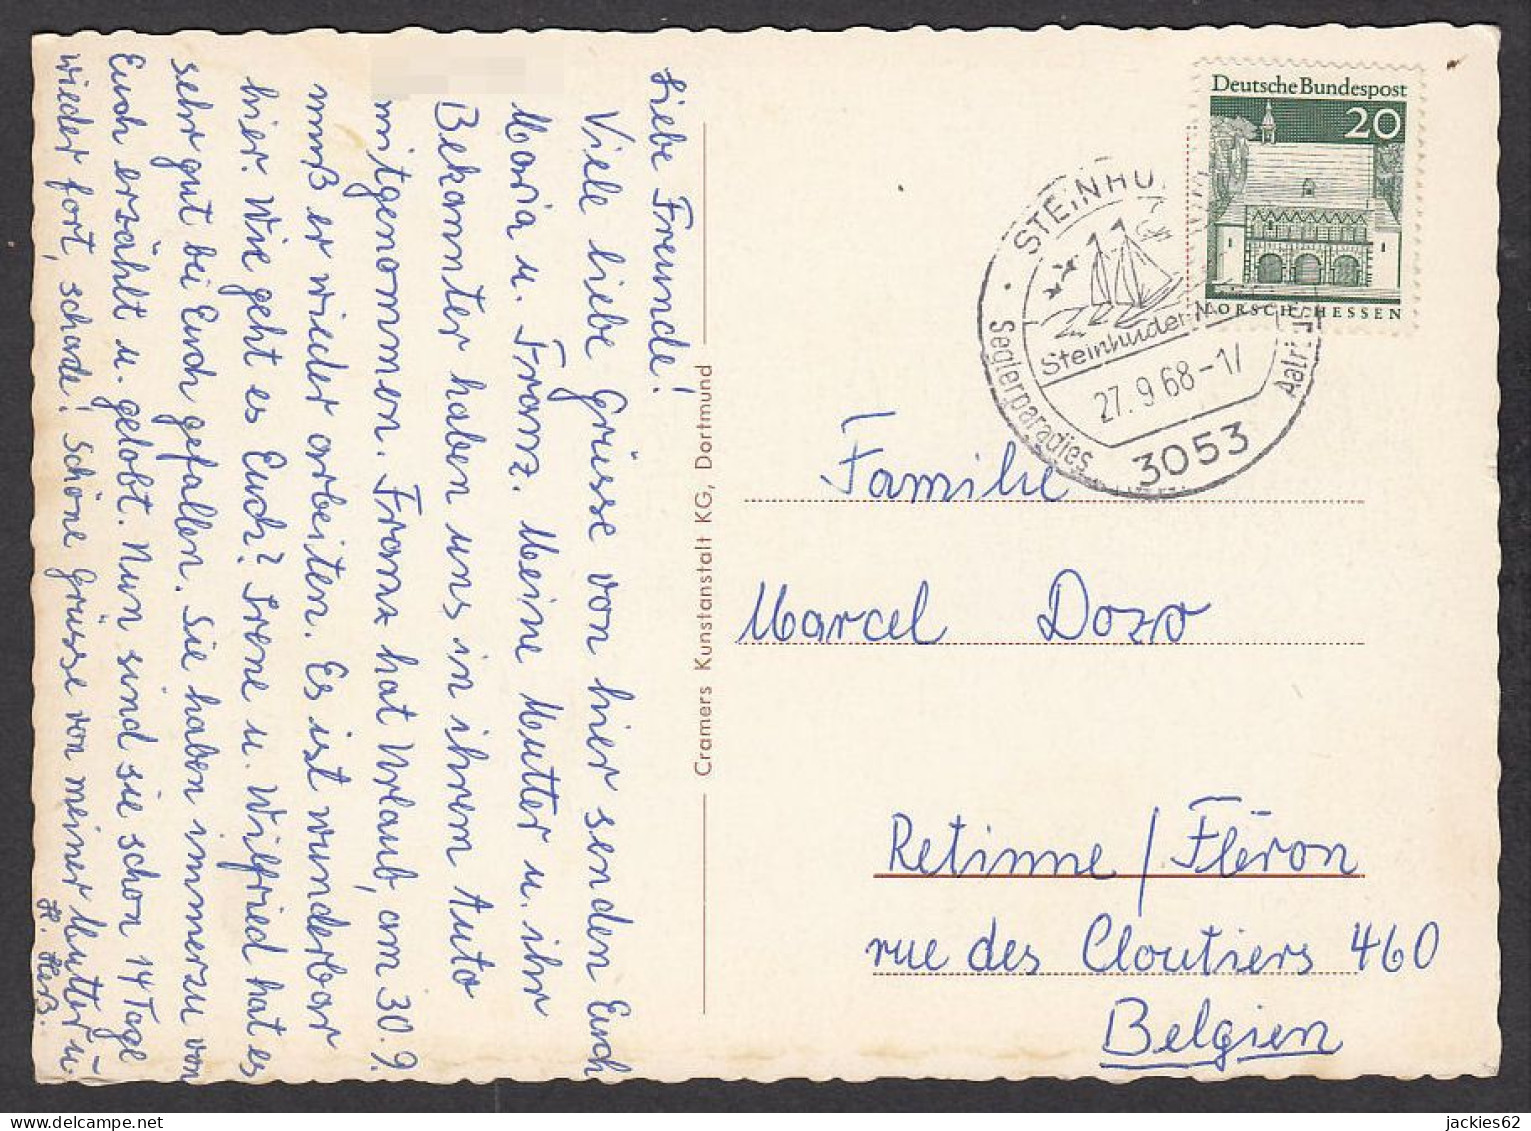 Liebe Freunde!
Viele liebe Grüsse von hier senden Euch
Maria u. Franz. Meine Mutter u. ihr
Bekannter haben uns in ihrem Auto
mitgenommen. Franz hat Urlaub, am 30. 9.
muß er wieder arbeiten. Es ist wunderbar
hier. Wie geht es Euch? Irene u. Wilfried hat es
sehr gut bei Euch gefallen. Sie haben immerzu von
Euch erzählt u. gelobt. Nun sind sie schon 14 Tage
wieder fort, schade! Schöne Grüsse von meiner Mutter u.
H. Heß.
Cramers Kunstanstalt KG, Dortmund
Deutsche Bundespost
20
LORSCH/HESSEN
STEINHU
Steinhuder M
27.9.68-17
3053
Seglerparadies
Familie
Marcel Dozo
Retinne / Fléron
rue des Cloutiers 460
Belgien
jackies62